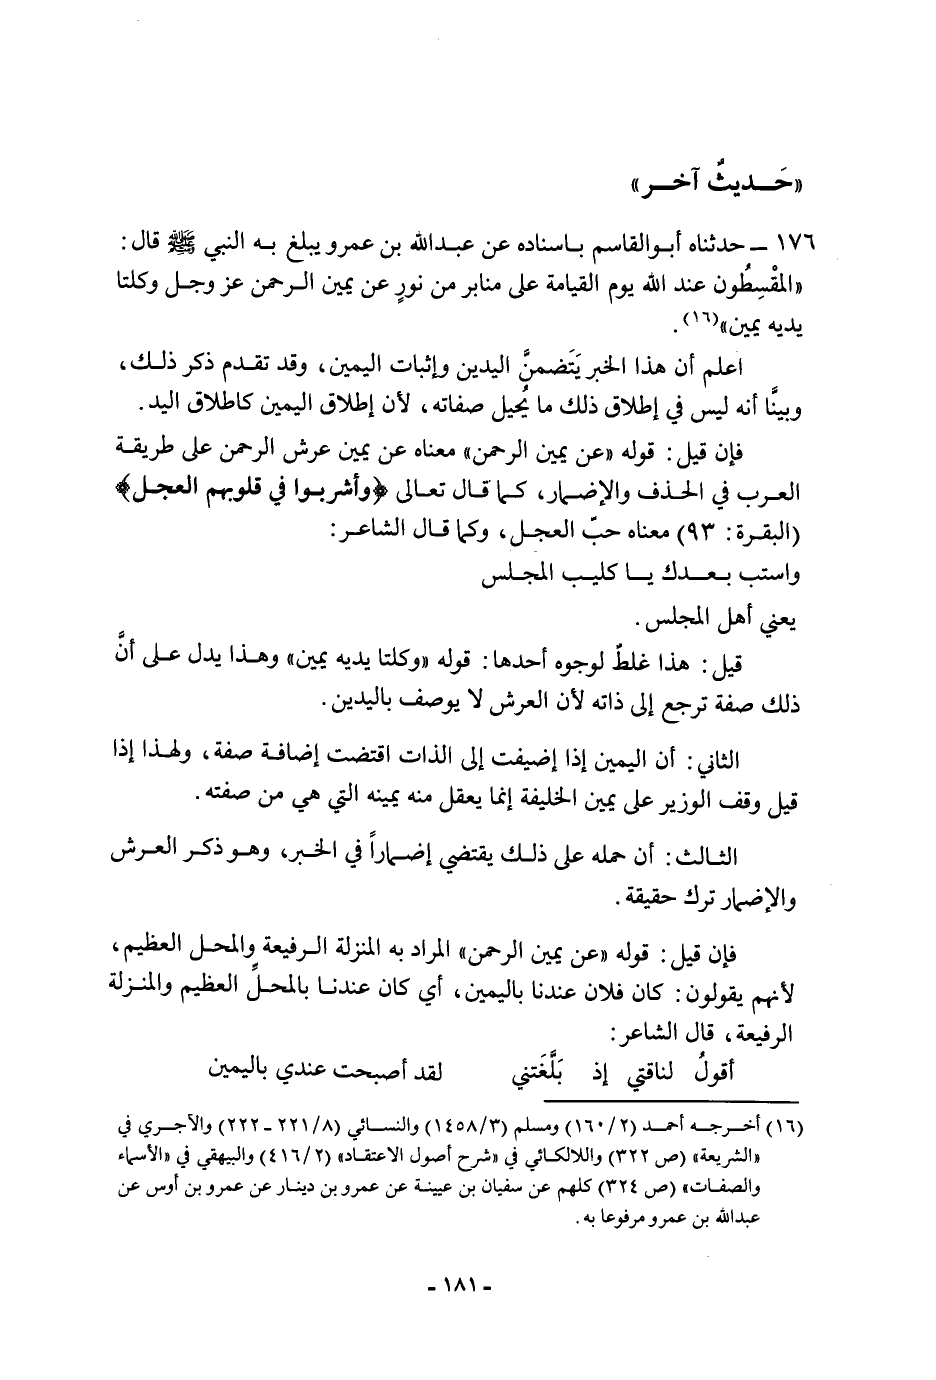 «حَـديثٌ آخـر»
١٧٦ - حدثناه أبو القاسم بإسناده عن عبدالله بن عمرو يبلغ به النبي ﷺ قال:
«المقْسِطُون عند الله يوم القيامة على منابر من نورٍ عن يمين الرحمن عز وجل وكلتا
يديه يمين»(١٦).
اعلم أن هذا الخبر يَتَضمنَّ اليدين وإثبات اليمين، وقد تقدم ذكر ذلك،
وبينَّا أنه ليس في إطلاق ذلك ما يُحيل صفاته، لأن إطلاق اليمين كاطلاق اليد.
فإن قيل: قوله «عن يمين الرحمن» معناه عن يمين عرش الرحمن على طريقة
العرب في الحذف والإضمار، كما قال تعالى ﴿وأشربوا في قلوبهم العجل﴾
(البقرة: ٩٣) معناه حبّ العجل، وكما قال الشاعر:
واستب بعدك يا كليب المجلس
يعني أهل المجلس.
قيل: هذا غلطٌ لوجوه أحدها: قوله «وكلتا يديه يمين» وهذا يدل على أنَّ
ذلك صفة ترجع إلى ذاته لأن العرش لا يوصف باليدين.
الثاني: أن اليمين إذا إضيفت إلى الذات اقتضت إضافة صفة، ولهذا إذا
قيل وقف الوزير على يمين الخليفة إنما يعقل منه يمينه التي هي من صفته.
الثالث: أن حمله على ذلك يقتضي إضماراً في الخبر، وهو ذكر العرش
والإضمار ترك حقيقة.
فإن قيل: قوله «عن يمين الرحمن» المراد به المنزلة الرفيعة والمحل العظيم،
لأنهم يقولون: كان فلان عندنا باليمين، أي كان عندنا بالمحلِّ العظيم والمنزلة
الرفيعة، قال الشاعر:
أقولُ لناقتي إذ بَلَّغَتني لقد أصبحت عندي باليمين
(١٦) أخرجه أحمد (١٦٠/٢) ومسلم (١٤٥٨/٣) والنسائي (٢٢١/٨ - ٢٢٢) والآجري في
«الشريعة» (ص ٣٢٢) واللالكائي في «شرح أصول الاعتقاد» (٤١٦/٢) والبيهقي في «الأسماء
والصفات» (ص ٣٢٤) كلهم عن سفيان بن عيينة عن عمرو بن دينار عن عمرو بن أوس عن
عبدالله بن عمرو مرفوعا به.
- ١٨١ -